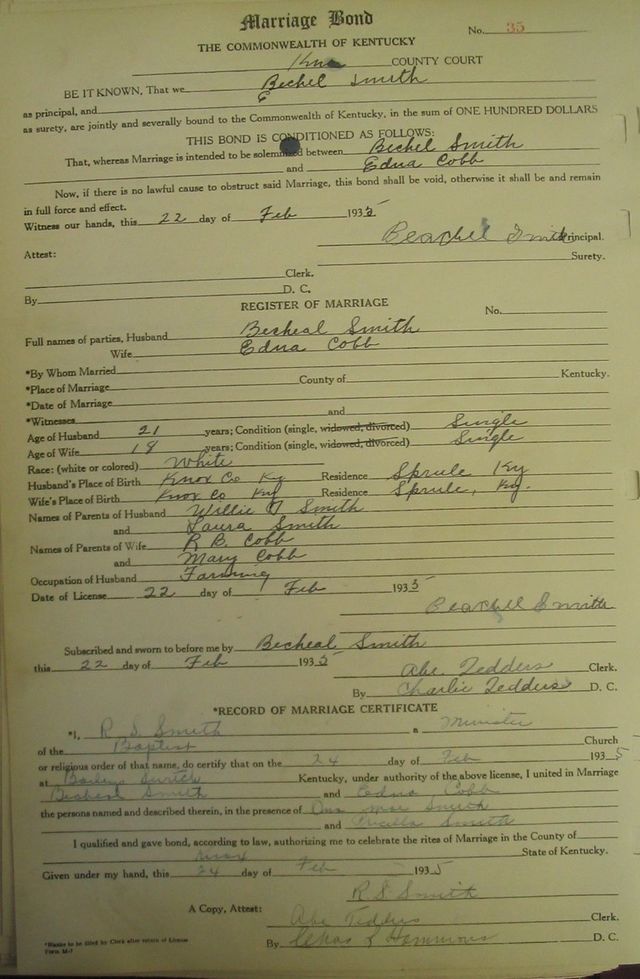 Marriage Bond
No. 35
THE COMMONWEALTH OF KENTUCKY
Knox COUNTY COURT
BE IT KNOWN, That we Bechel Smith
as principal, and
as surety, are jointly and severally bound to the Commonwealth of Kentucky, in the sum of ONE HUNDRED DOLLARS
THIS BOND IS CONDITIONED AS FOLLOWS:
That, whereas Marriage is intended to be solemnized between Bechel Smith
and Edna Cobb
Now, if there is no lawful cause to obstruct said Marriage, this bond shall be void, otherwise it shall be and remain
in full force and effect.
Witness our hands, this 22 day of Feb 1935
Beachel Smith Principal.
Attest: Surety.
Clerk.
By D. C.
REGISTER OF MARRIAGE
No.
Full names of parties, Husband Becheal Smith
Wife Edna Cobb
*By Whom Married
*Place of Marriage County of Kentucky.
*Date of Marriage
*Witnesses and
Age of Husband 21 years; Condition (single, widowed, divorced) Single
Age of Wife 18 years; Condition (single, widowed, divorced) Single
Race: (white or colored) White
Husband's Place of Birth Knox Co Ky Residence Sprule Ky
Wife's Place of Birth Knox Co Ky Residence Sprule, Ky.
Names of Parents of Husband Willie Smith
and Laura Smith
Names of Parents of Wife R. B. Cobb
and Mary Cobb
Occupation of Husband Farming
Date of License 22 day of Feb 1935
Beachel Smith
Subscribed and sworn to before me by Becheal Smith
this 22 day of Feb 1935
Abe. Tedders Clerk.
By Charlie Tedders D. C.
*RECORD OF MARRIAGE CERTIFICATE
*I, R. S. Smith a Minister
of the Baptist Church
or religious order of that name, do certify that on the 24 day of Feb 1935
at Kentucky, under authority of the above license, I united in Marriage
Becheal Smith and Edna Cobb
the persons named and described therein, in the presence of Mae Smith
and Smith
I qualified and gave bond, according to law, authorizing me to celebrate the rites of Marriage in the County of
Knox State of Kentucky.
Given under my hand, this 24 day of Feb 1935
R. S. Smith
A Copy, Attest: Abe Tedders Clerk.
By Hammons D. C.
*Blanks to be filled by Clerk after return of License
Form M-7